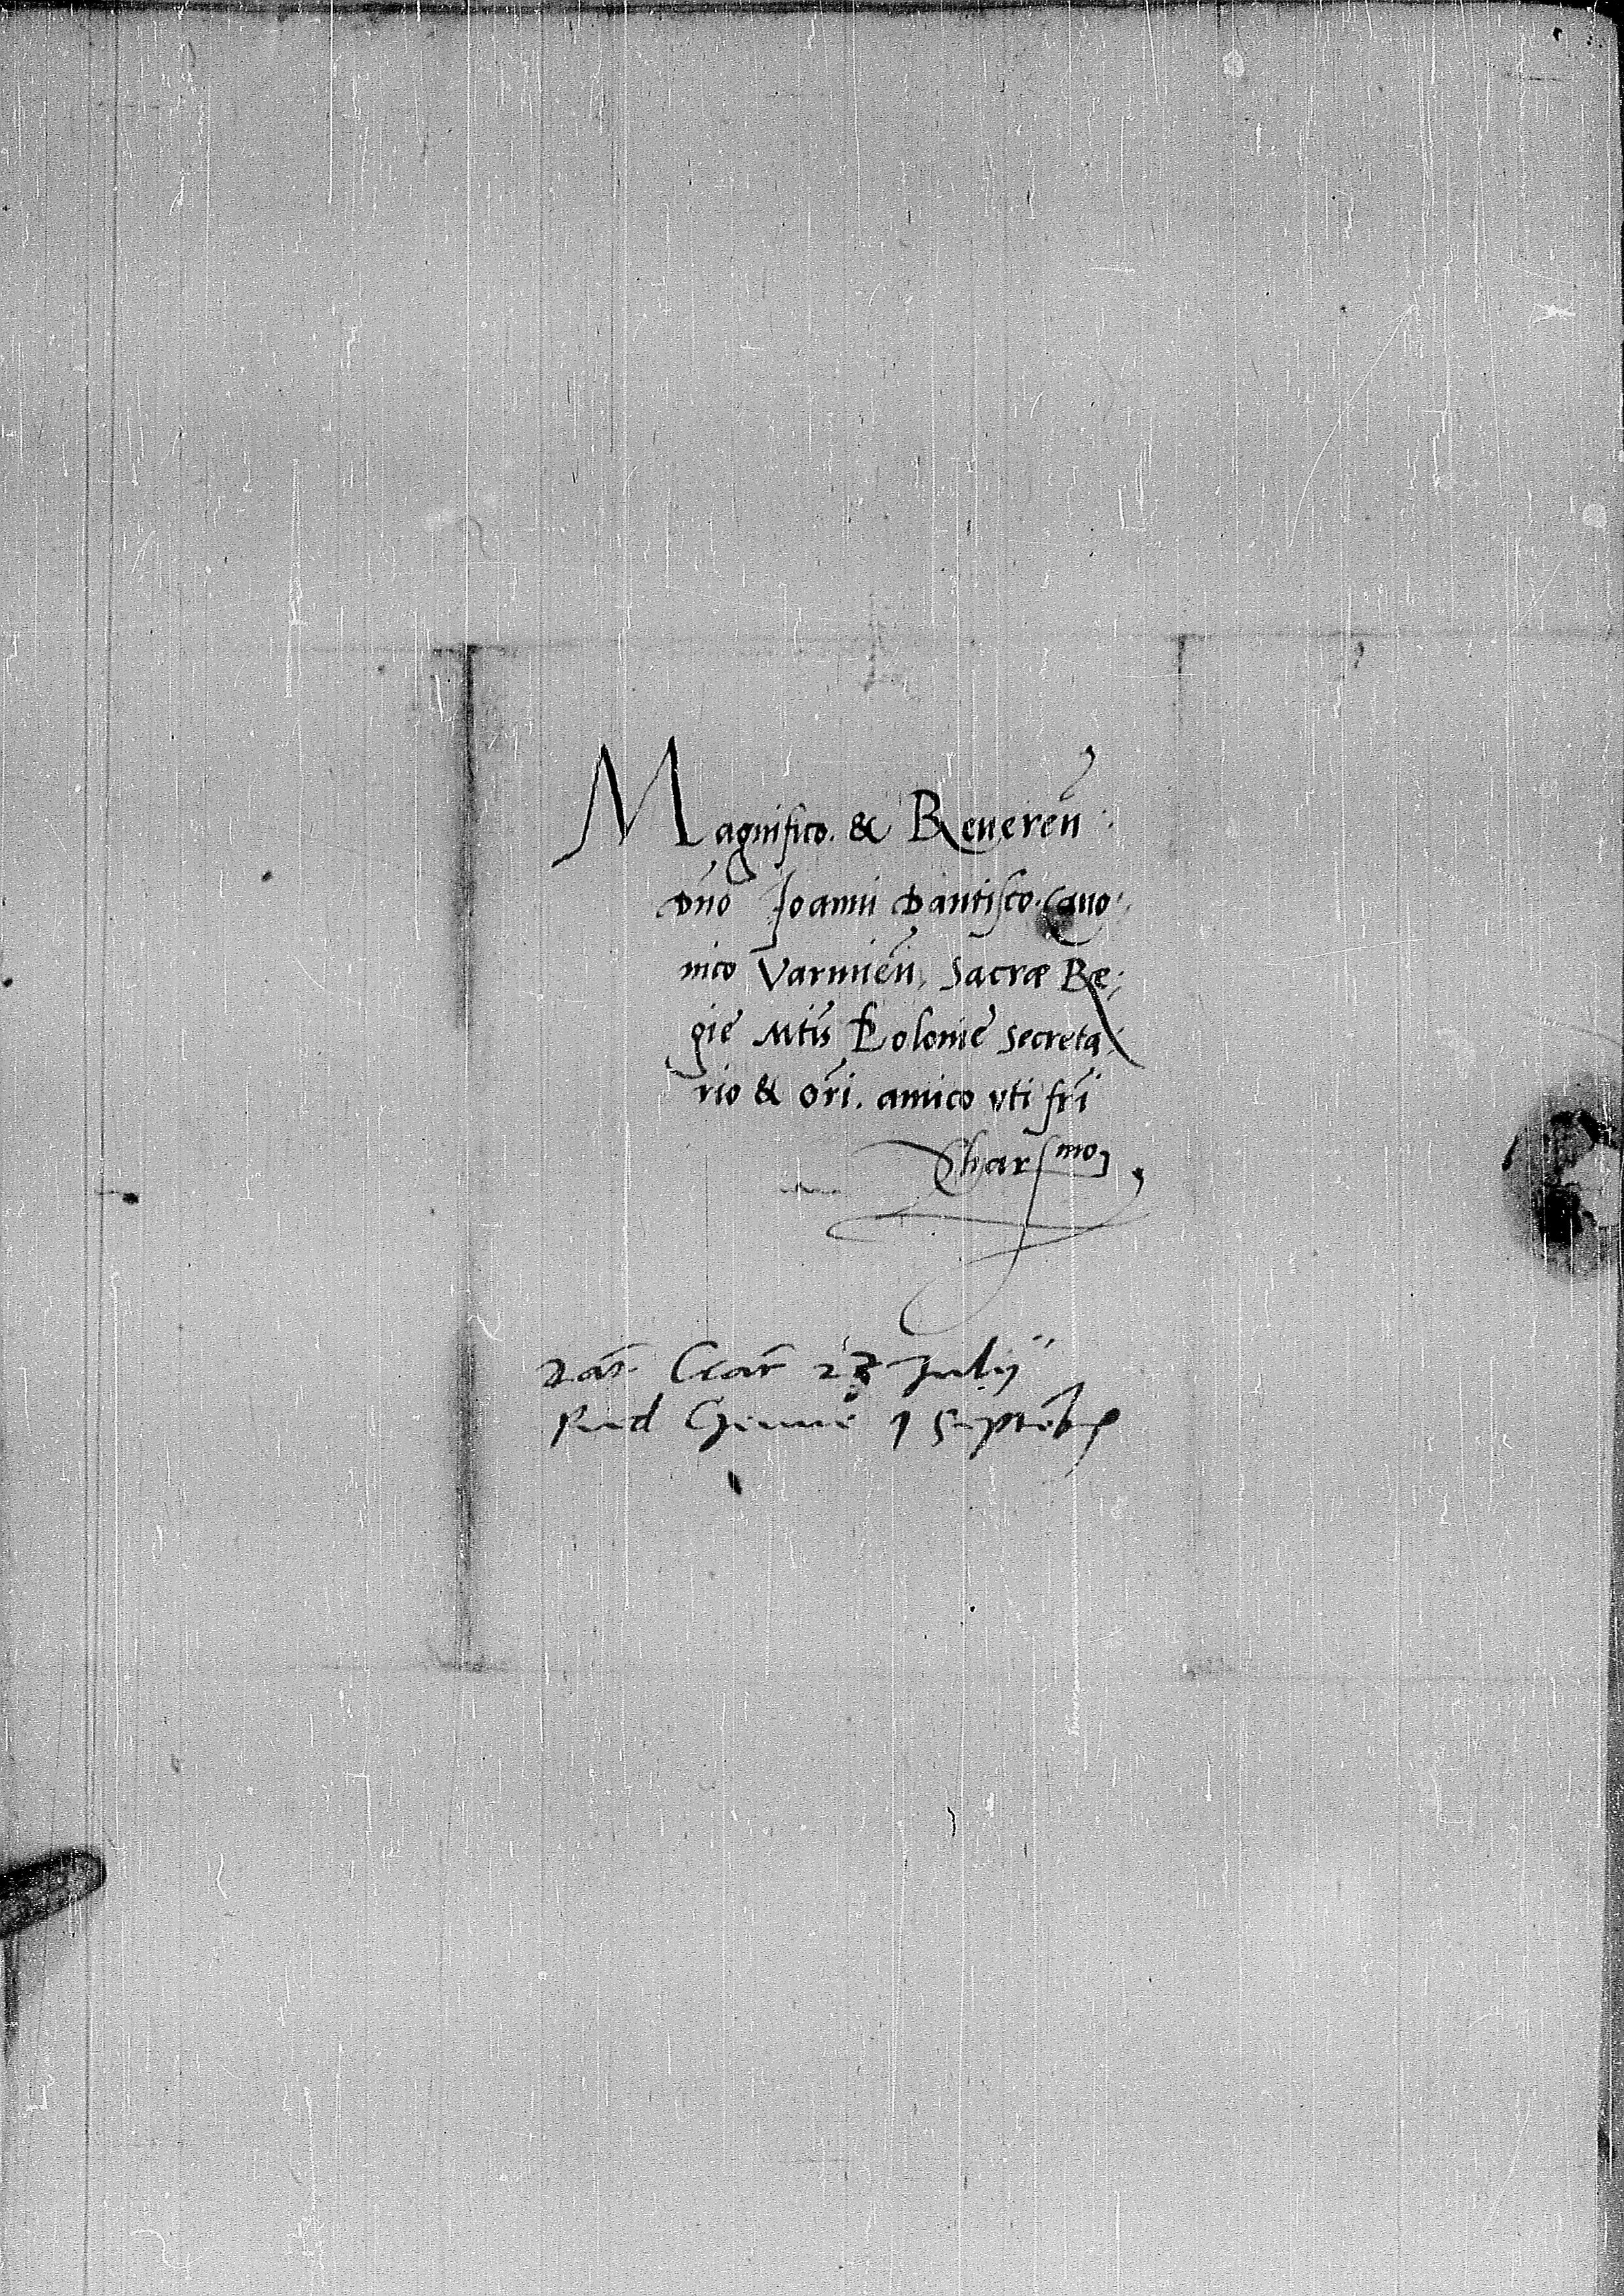 Magnifico. & Reveren̄
Dn̄o Ioanni Dantisco. Cano,,
nico Varmien̄, Sacræ Re,,
gie Mtis Polonie Secreta,,
rio & ori. amico vti fr̄i
Charsmo,
Dat. 23 Julij
Red 1 Septēbr